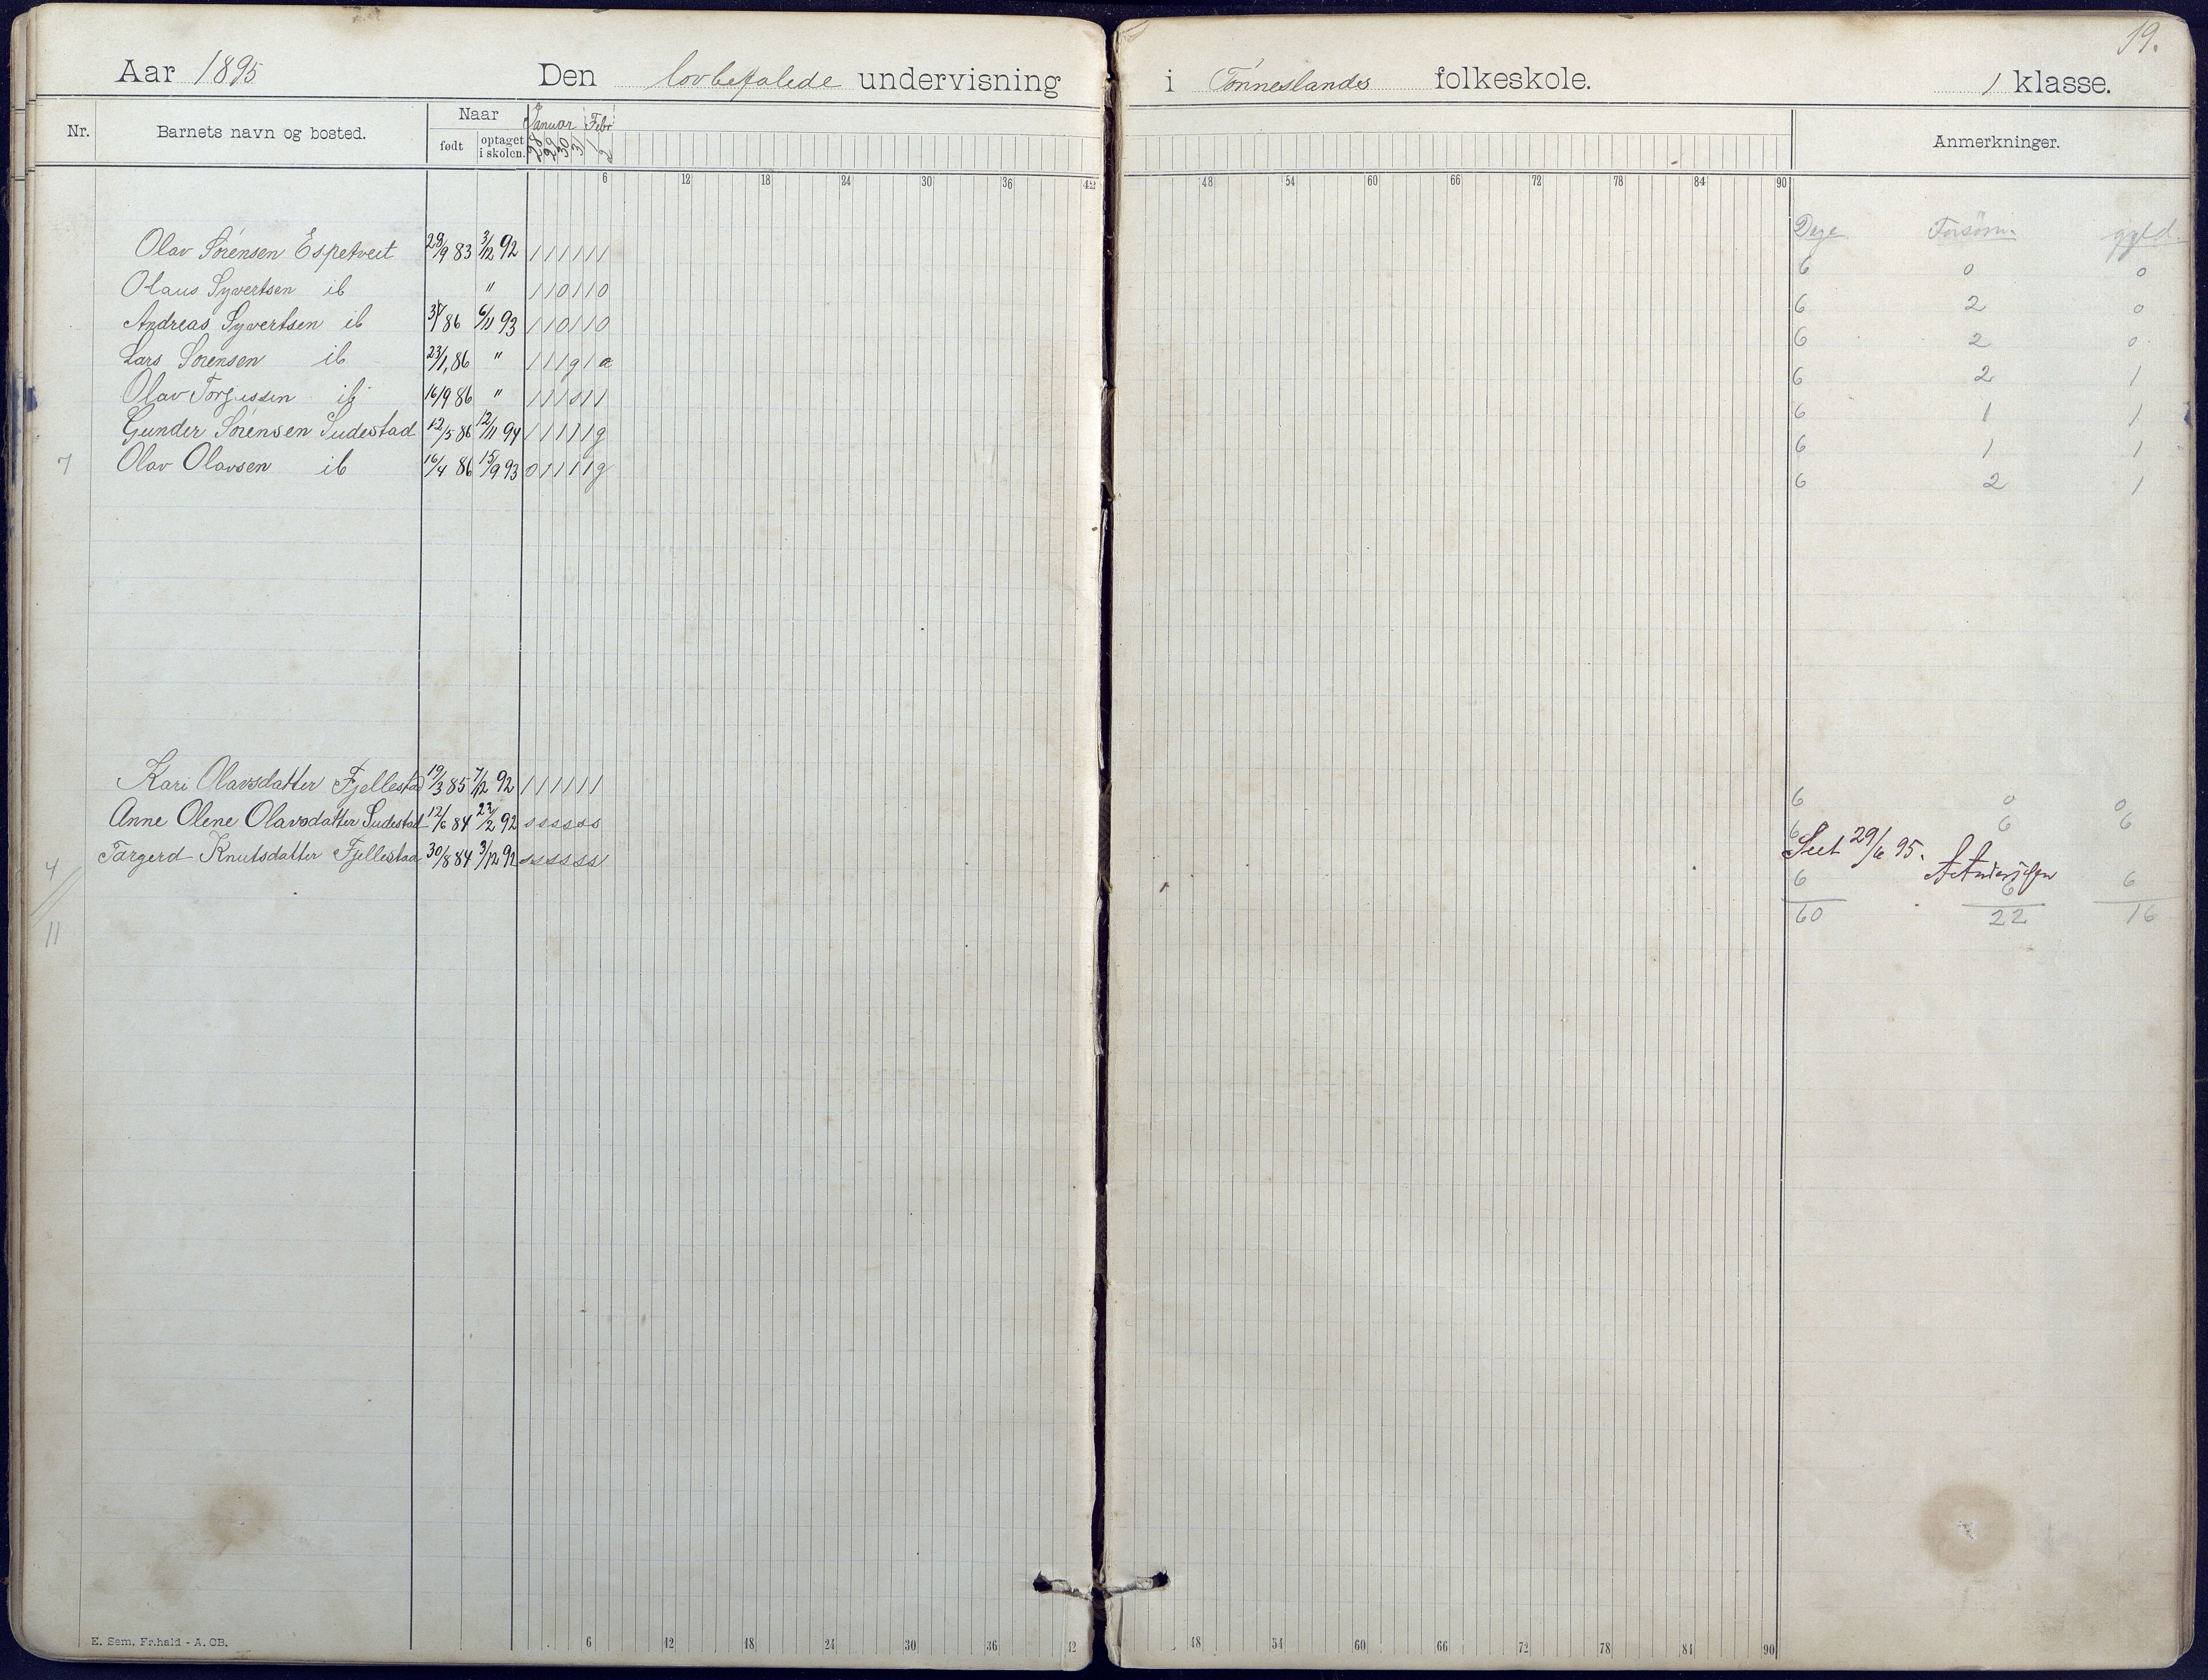 19.
Aar 1895 Den lovbefalede undervisning i Tønneslandes folkeskole. 1 klasse.
Nr. Barnets navn og bosted. Naar født optaget i skolen. Januar Febr 28 29 30 31 1 2 Anmerkninger.
6 12 18 24 30 36 42 48 54 60 66 72 78 84 90
Dage Forsøm. gyld.
Olav Sørensen Espetveit 28/9 83 3/12 92 1 1 1 1 1 1 6 0 0
Olaus Syvertsen ib " 1 1 0 1 1 0 6 2 0
Andreas Syvertsen ib 86 6/11 93 1 1 0 1 1 0 6 2 0
Lars Sørensen ib 23/1 86 " 1 1 1 g 1 a 6 2 1
Olav Torjussen ib 16/9 86 " 1 1 1 s 1 1 6 1 1
Gunder Sørensen Sudestad 12/5 86 12/11 94 1 1 1 1 1 g 6 1 1
7 Olav Olavsen ib 16/4 86 15/9 93 0 1 1 1 1 g 6 2 1
Kari Olavsdatter Fjellestad 19/3 85 7/12 92 1 1 1 1 1 1 6 0 0
Anne Olene Olavsdatter Sudestad 12/6 84 23/2 92 s s s s s s 6 6 6
Seet 29/6 95.
Targerd Knutsdatter Fjellestad 30/8 84 3/12 92 s s s s s s 6 6 6
4
60 22 16
11
6 12 18 24 30 36 42 48 54 60 66 72 78 84 90
E. Sem, Fr.hald - A. CB.